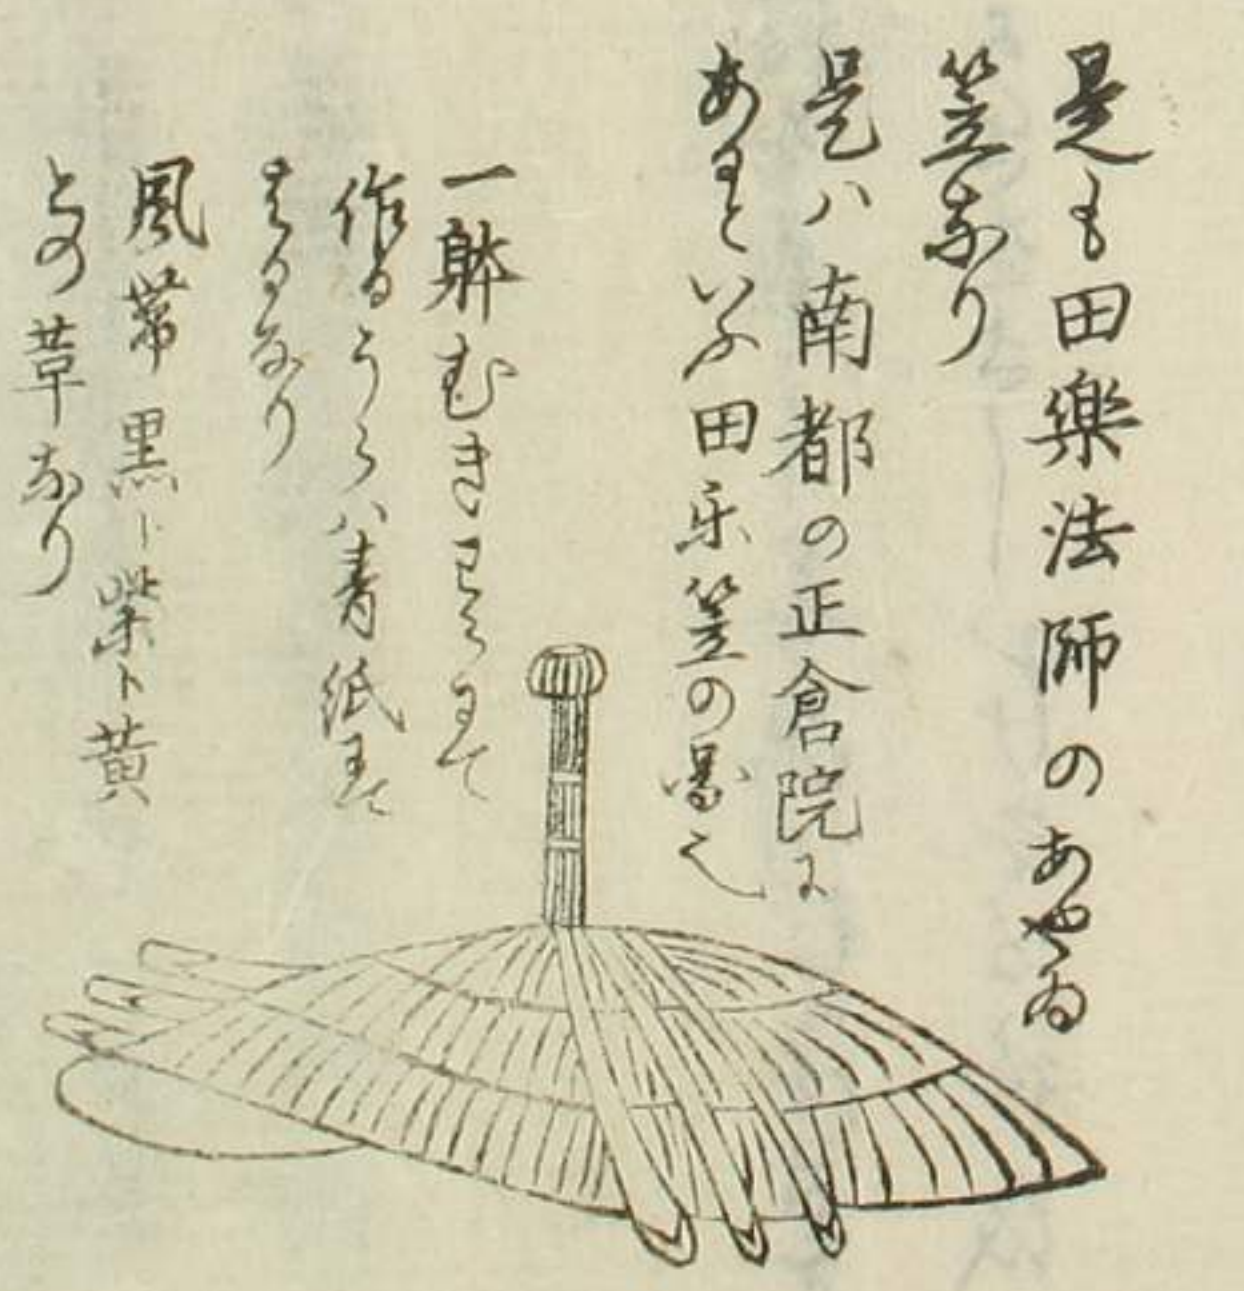 是も田樂法師のあやゐ
笠なり
是ハ南都の正倉院に
ありといふ田乐笠の圖也
一躰むきわらにて
作るうらハ青紙にて
はるなり
風帯黒ト紫ト黄
との革なり